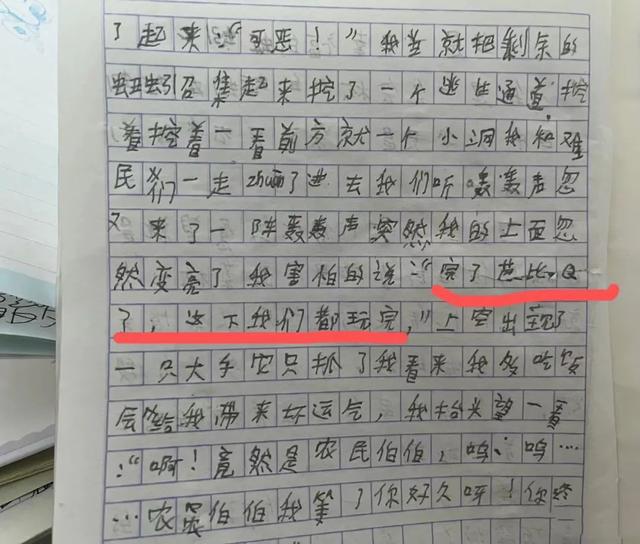 了起来:“可恶！”我当就把剩余的
蚯蚓召集起来挖了一个逃生通道,挖
着挖着一看前方就一个小洞我和难
民们一走zhuan了进去我们听轰轰声忽
又来了一阵轰轰声突然我的上面忽
然变亮了我害怕的说:“完了芭比Q
了，这下我们都玩完,”上空出现了
一只大手农只抓了我看来我多吃饭
会给我带来坏运气，我抬头望一看
:“啊！竟然是农民伯伯，呜呜…
…农民伯伯我等了你好久呀！你终